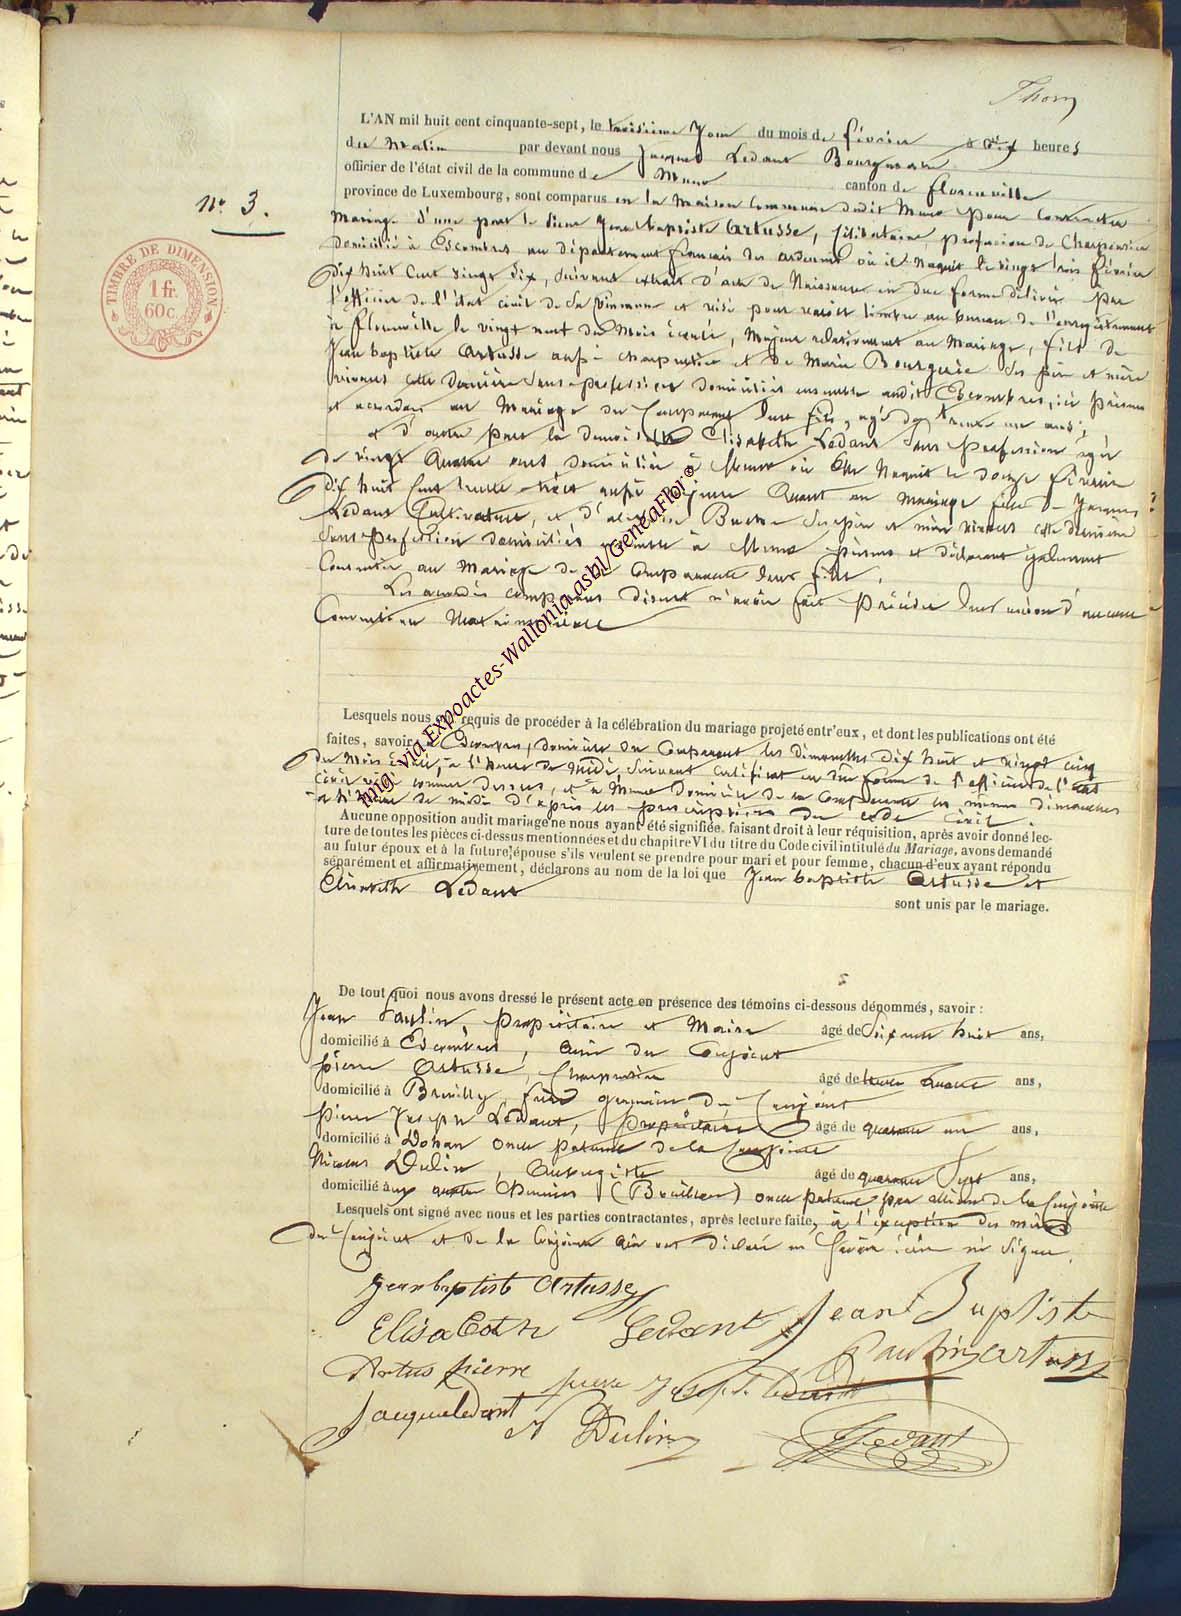 Thorn
n° 3.
TIMBRE DE DIMENSION
1 fr.
60c.
L'AN mil huit cent cinquante-sept, le troisième Jour du mois de février à dix heures
du Matin par devant nous Jacques Ledant Bourgmestre
officier de l'état civil de la commune de Muno canton de florenville
province de Luxembourg, sont comparus en la Maison Commune dudit Muno pour Contracter
Mariage d'une part le sieur Jean baptiste Artusse, Célibataire, profession de Charpentier
domicilié à Escombres au département français des ardennes où il Naquit le vingt trois février
dix huit Cent vingt six, suivant extrait d'acte de Naissance en due forme délivré par
l'officier de l'état civil de sa Commune et visé pour valoir timbre au bureau de l'enregistrement
à florenville le vingt neuf du Mois écoulé, Majeur relativement au Mariage, fils de
Jean baptiste Artusse aussi charpentier et de Marie Bourguin ses père et mère
vivants cette dernière Sans profession domiciliés ensemble audit Escombres, ici présens
et accordans au Mariage du Comparant leur fils, agé de trente un ans;
et d'autre part la demoiselle Elisabeth Ledant Sans profession agée
de vingt quatre ans, domiciliée à Muno où Elle Naquit le douze février
dix huit Cent trente trois aussi Majeure Quant au Mariage fille de Jacques
Ledant Cultivateur, et d' Buston Ses père et mère vivants cette dernière
Sans profession domiciliés ensemble à Muno présens et déclarant également
Consentir au Mariage de la Comparante leur fille.
Les accordés comparans disent n'avoir fait Précéder leur union d'aucune
Convention Matrimoniale
Lesquels nous ont requis de procéder à la célébration du mariage projeté entr'eux, et dont les publications ont été
faites, savoir à Escombres, domicile du Comparant les dimanches dix huit et vingt cinq
du Mois écoulé, à l'heure de Midi, Suivant Certificat en due forme de l'officier de l'état
civil visé comme dessus, et à Muno domicile de la Comparante les mêmes dimanches
à l'heure de midi d'après les prescriptions du code Civil.
Aucune opposition audit mariage ne nous ayant été signifiée, faisant droit à leur réquisition, après avoir donné lec-
ture de toutes les pièces ci-dessus mentionnées et du chapitre VI du titre du Code civil intitulé du Mariage, avons demandé
au futur époux et à la future épouse s'ils veulent se prendre pour mari et pour femme, chacun d'eux ayant répondu
séparément et affirmativement, déclarons au nom de la loi que Jean baptiste Artusse et
Elisabeth Ledant
sont unis par le mariage.
De tout quoi nous avons dressé le présent acte en présence des témoins ci-dessous dénommés, savoir :
Jean Paulin, propriétaire et Maire âgé de Soixante huit ans,
domicilié à Escombres, ami du Conjoint
pierre Artusse, Charpentier âgé de trente quatre ans,
domicilié à Brévilly, frère germain du Conjoint
pierre Joseph Ledant, propriétaire âgé de quarante un ans,
domicilié à Dohan oncle paternel de la Conjointe
Nicolas Dulin, Aubergiste âgé de quarante Sept ans,
domicilié aux quatre Chemins (Bouillon) oncle paternel par alliance de la Conjointe
Lesquels ont signé avec nous et les parties contractantes, après lecture faite, à l'exception des mères
du Conjoint et de la Conjointe qui ont déclaré ne Savoir écrire ni Signer.
Jean baptiste Artusse
Elisabeth Ledant Jean Baptiste
Paulin artuss
Artus pierre pierre Joseph Ledant
Jacque ledant N Dulin JLedant
mig via Expoactes-Wallonia.asbl/GeneaFlor©